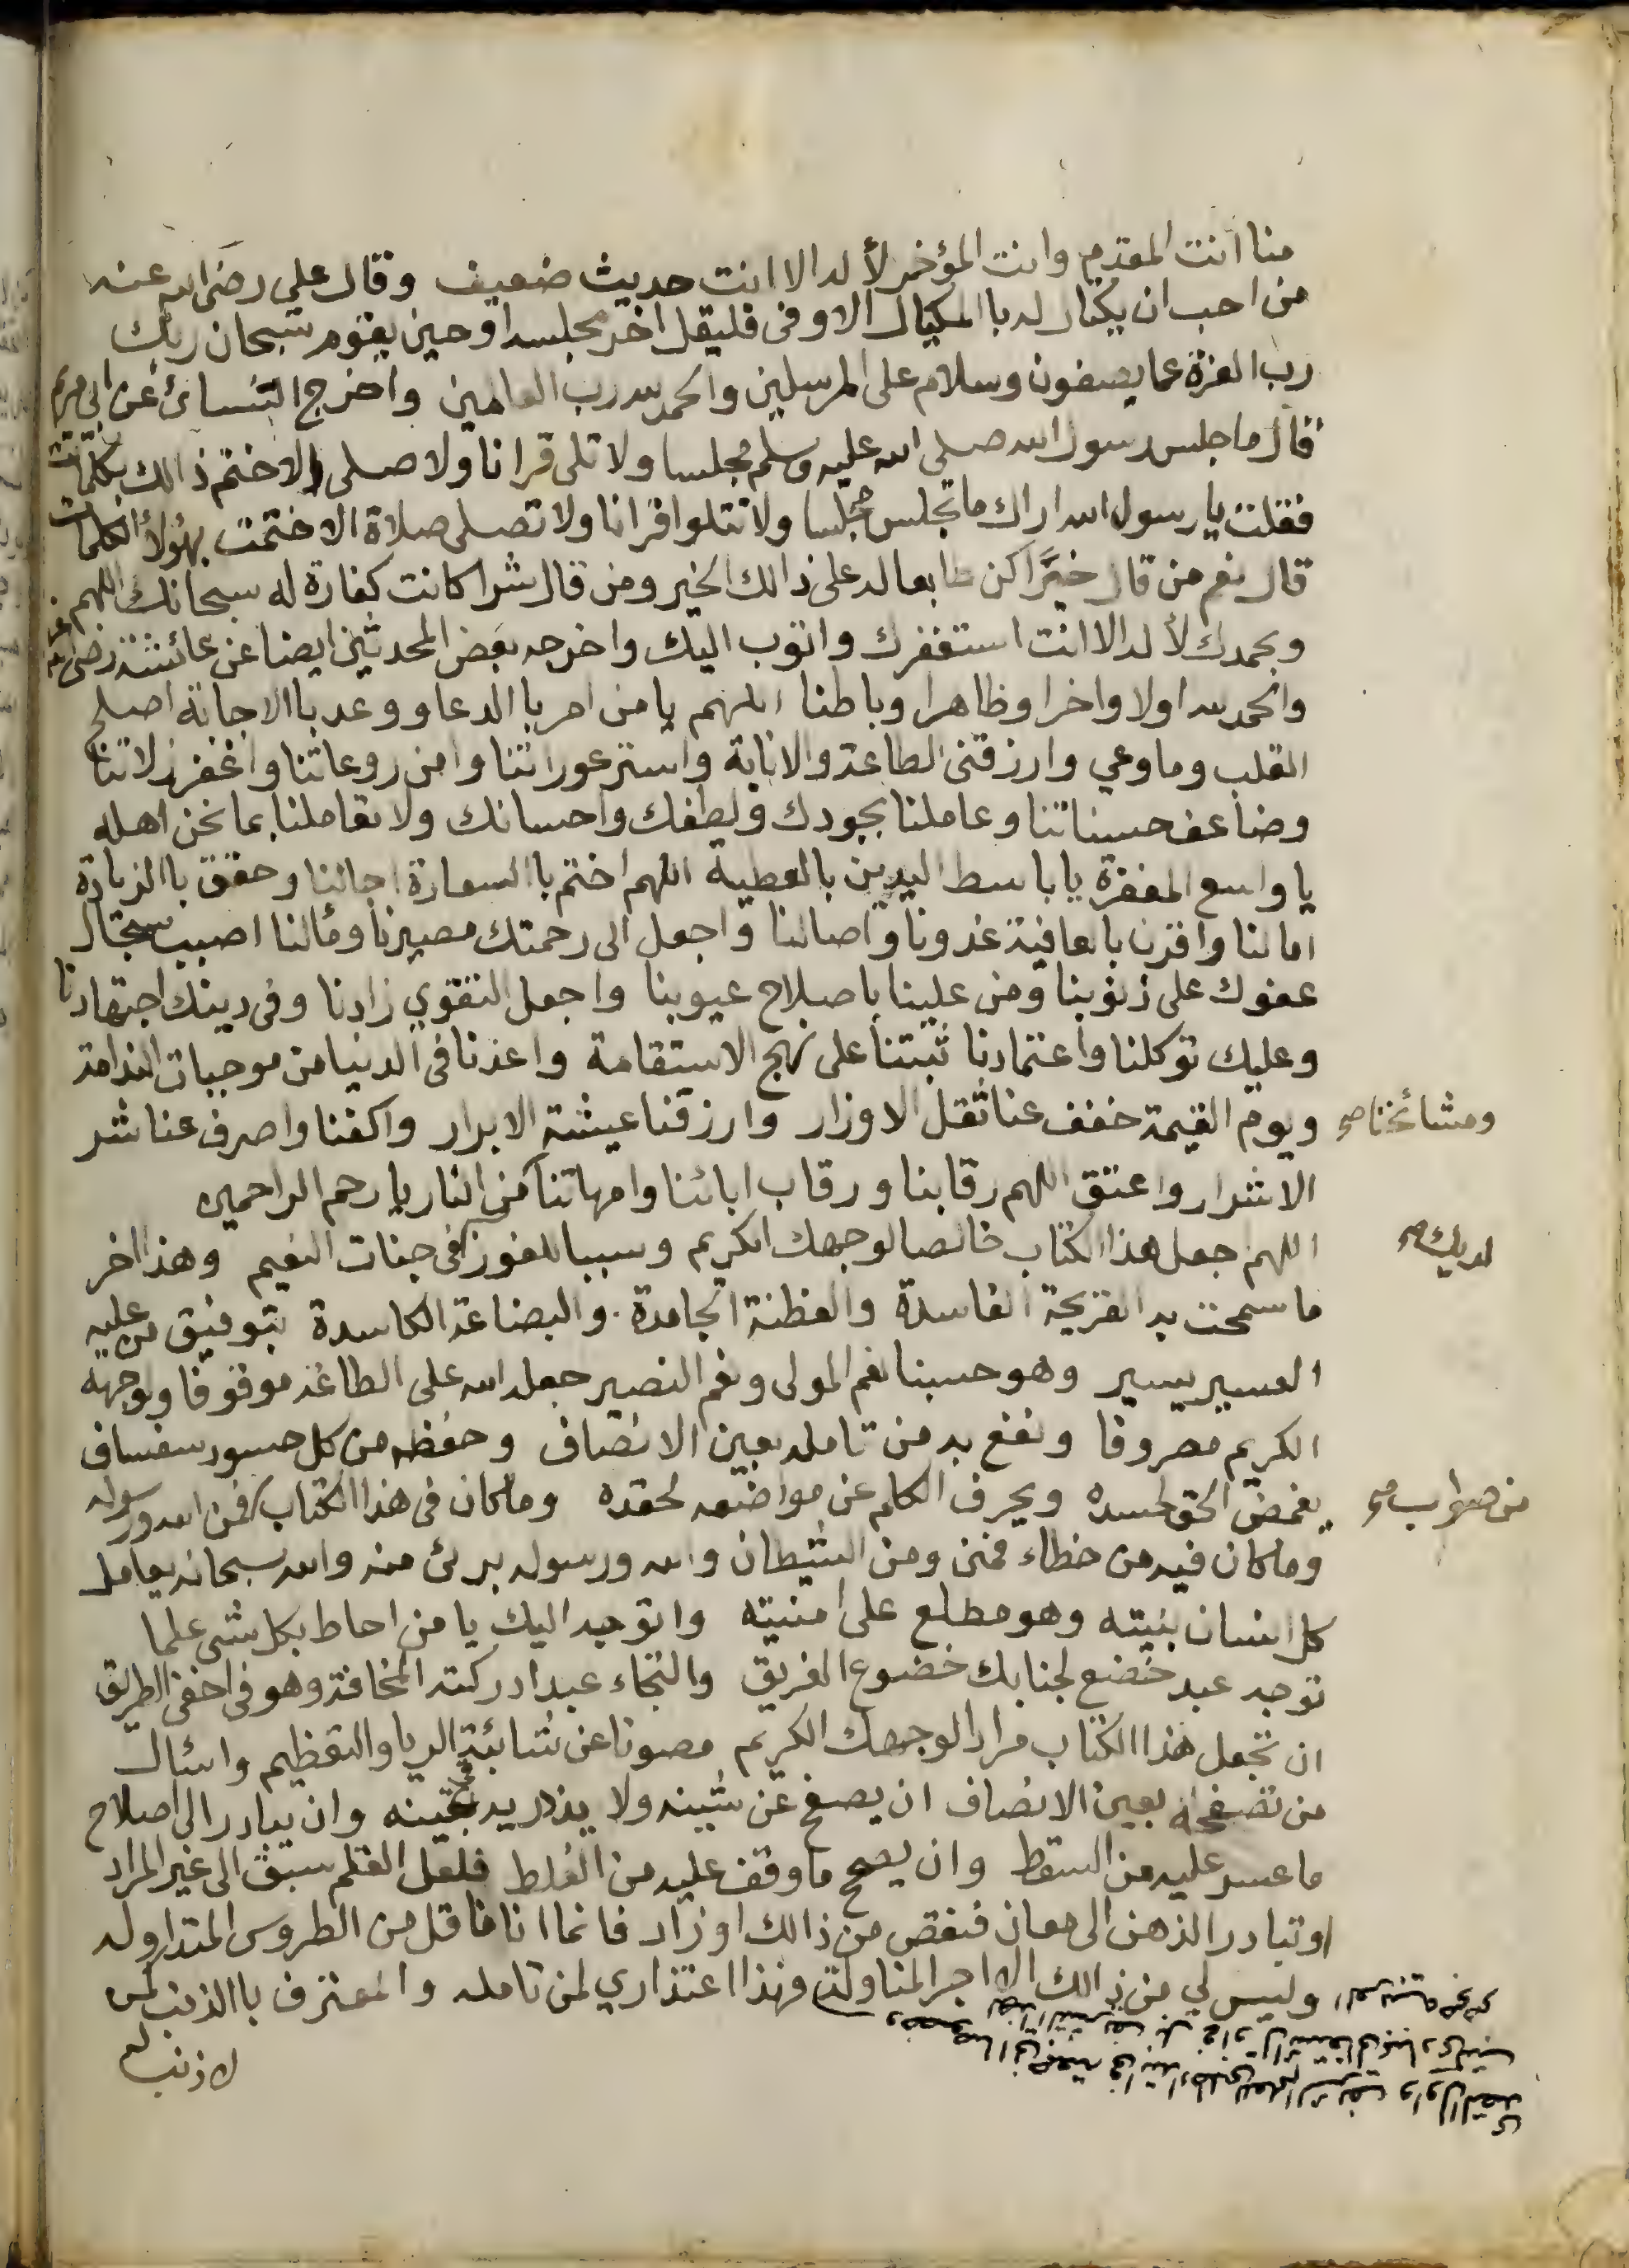 منا انت المقدم وانت المؤخر لأ له الا انت حديث ضعيف وقال علي رضي الله عنه
من احب ان يكتال له با المكيال الاوفى فليقل اخر مجلسه او حين يقوم سبحان ربك
رب العزة عما يصفون وسلام على المرسلين والحمد لله رب العالمين واخرج النسائ عن ابي
قال ما جلس رسول الله صلى الله عليه وسلم مجلسا ولا تلى قرانا ولا صلى الا ختم ذالك بكلمات
فقلت يا رسول الله اراك ما تجلس مجلسا ولا تتلوا قرانا ولا تصلى صلاة الا ختمت بهؤلأ الكلمات
قال نعم من قال خيرا كن طابعا له على ذالك الخير ومن قال شرا كانت كفارة له سبحانك اللهم
وبحمدك لأ له الا انت استغفرك واتوب اليك واخرجه بعض المحدثين ايضا عن عائشة رضي الله
والحمد لله اولا واخرا وظاهرا وباطنا اللهم يا من امر با الدعا ووعد با الاجابة اصلح
القلب وما وعي وارزقنى الطاعة والانابة واستر عوراتنا وامن روعاتنا واغفر زلاتنا
وضاعف حسناتنا وعاملنا بجودك ولطفك واحسانك ولا تعاملنا بما نحن اهله
يا واسع المغفرة يا باسط اليدين بالعطية اللهم اختم با السعادة اجالنا وحقق با الزيادة
امالنا واقرن بالعافية غدونا واصالنا واجعل الى رحمتك مصيرنا ومألنا اصبب سجال
عفوك على ذنوبنا ومن علينا باصلاح عيوبنا واجعل التقوي زادنا وفى دينك اجتهادنا
وعليك توكلنا واعتمادنا ثبتنا على نهج الاستقامة واعذنا فى الدنيا من موجبات الندامة
ويوم القيمة خفف عنا ثقل الاوزار وارزقنا عيشة الابرار واكفنا واصرف عنا شر
ومشائخنا صح
الاشرار واعتق اللهم رقابنا ورقاب ابائنا وامهاتنا من النار يا رحم الراحمين
اللهم اجعل هذا الكتاب خالصا لوجهك الكريم وسببا للفوز فى جنات النعيم وهذا اخر
لديك صح
ما سمحت به القريحة الفاسدة والفطنة الجامدة . والبضاعة الكاسدة بتوفيق من عليه
العسير يسير وهو حسبنا نعم المولى ونعم النصير جعله الله على الطاعة موقوفا ولوجهه
الكريم مصروفا ونفع به من تامله بعين الانصاف وحفظه من كل حسود سفساف
يغمض الحق لحسده ويحرف الكلم عن مواضعه لحقده وما كان فى هذا الكتاب فمن الله ورسوله
من صواب صح
وما كان فيه من خطاء فمنى ومن الشيطان والله ورسوله برئ منه والله سبحانه يعامل
كل انسان بنيته وهو مطلع على امنيته واتوجه اليك يا من احاط بكل شى علما
توجه عبد خضع لجنابك خضوع الغريق والتجاء عبد ادركته المخافة وهو فى اخفى الطريق
ان تجعل هذا الكتاب مرادا لوجهك الكريم مصونا عن شائبة الريا والتعظيم واسئال
من تصفحه بعين الانصاف ان يصفح عن شينه ولا يزدريه بعينه وان يبادر الى اصلاح
ما عسر عليه من السقط وان يصحح ما وقف عليه من الغلط فلعل القلم سبق الى غير المراد
او تبادر الذهن الى معان فنقص من ذالك او زاد فانما انا ناقل من الطروس المتداوله
وليس لي من ذالك الا اجر المناولة فهذا اعتذاري لمن تامله والمعترف با الذنب كمن
لا ذنب له